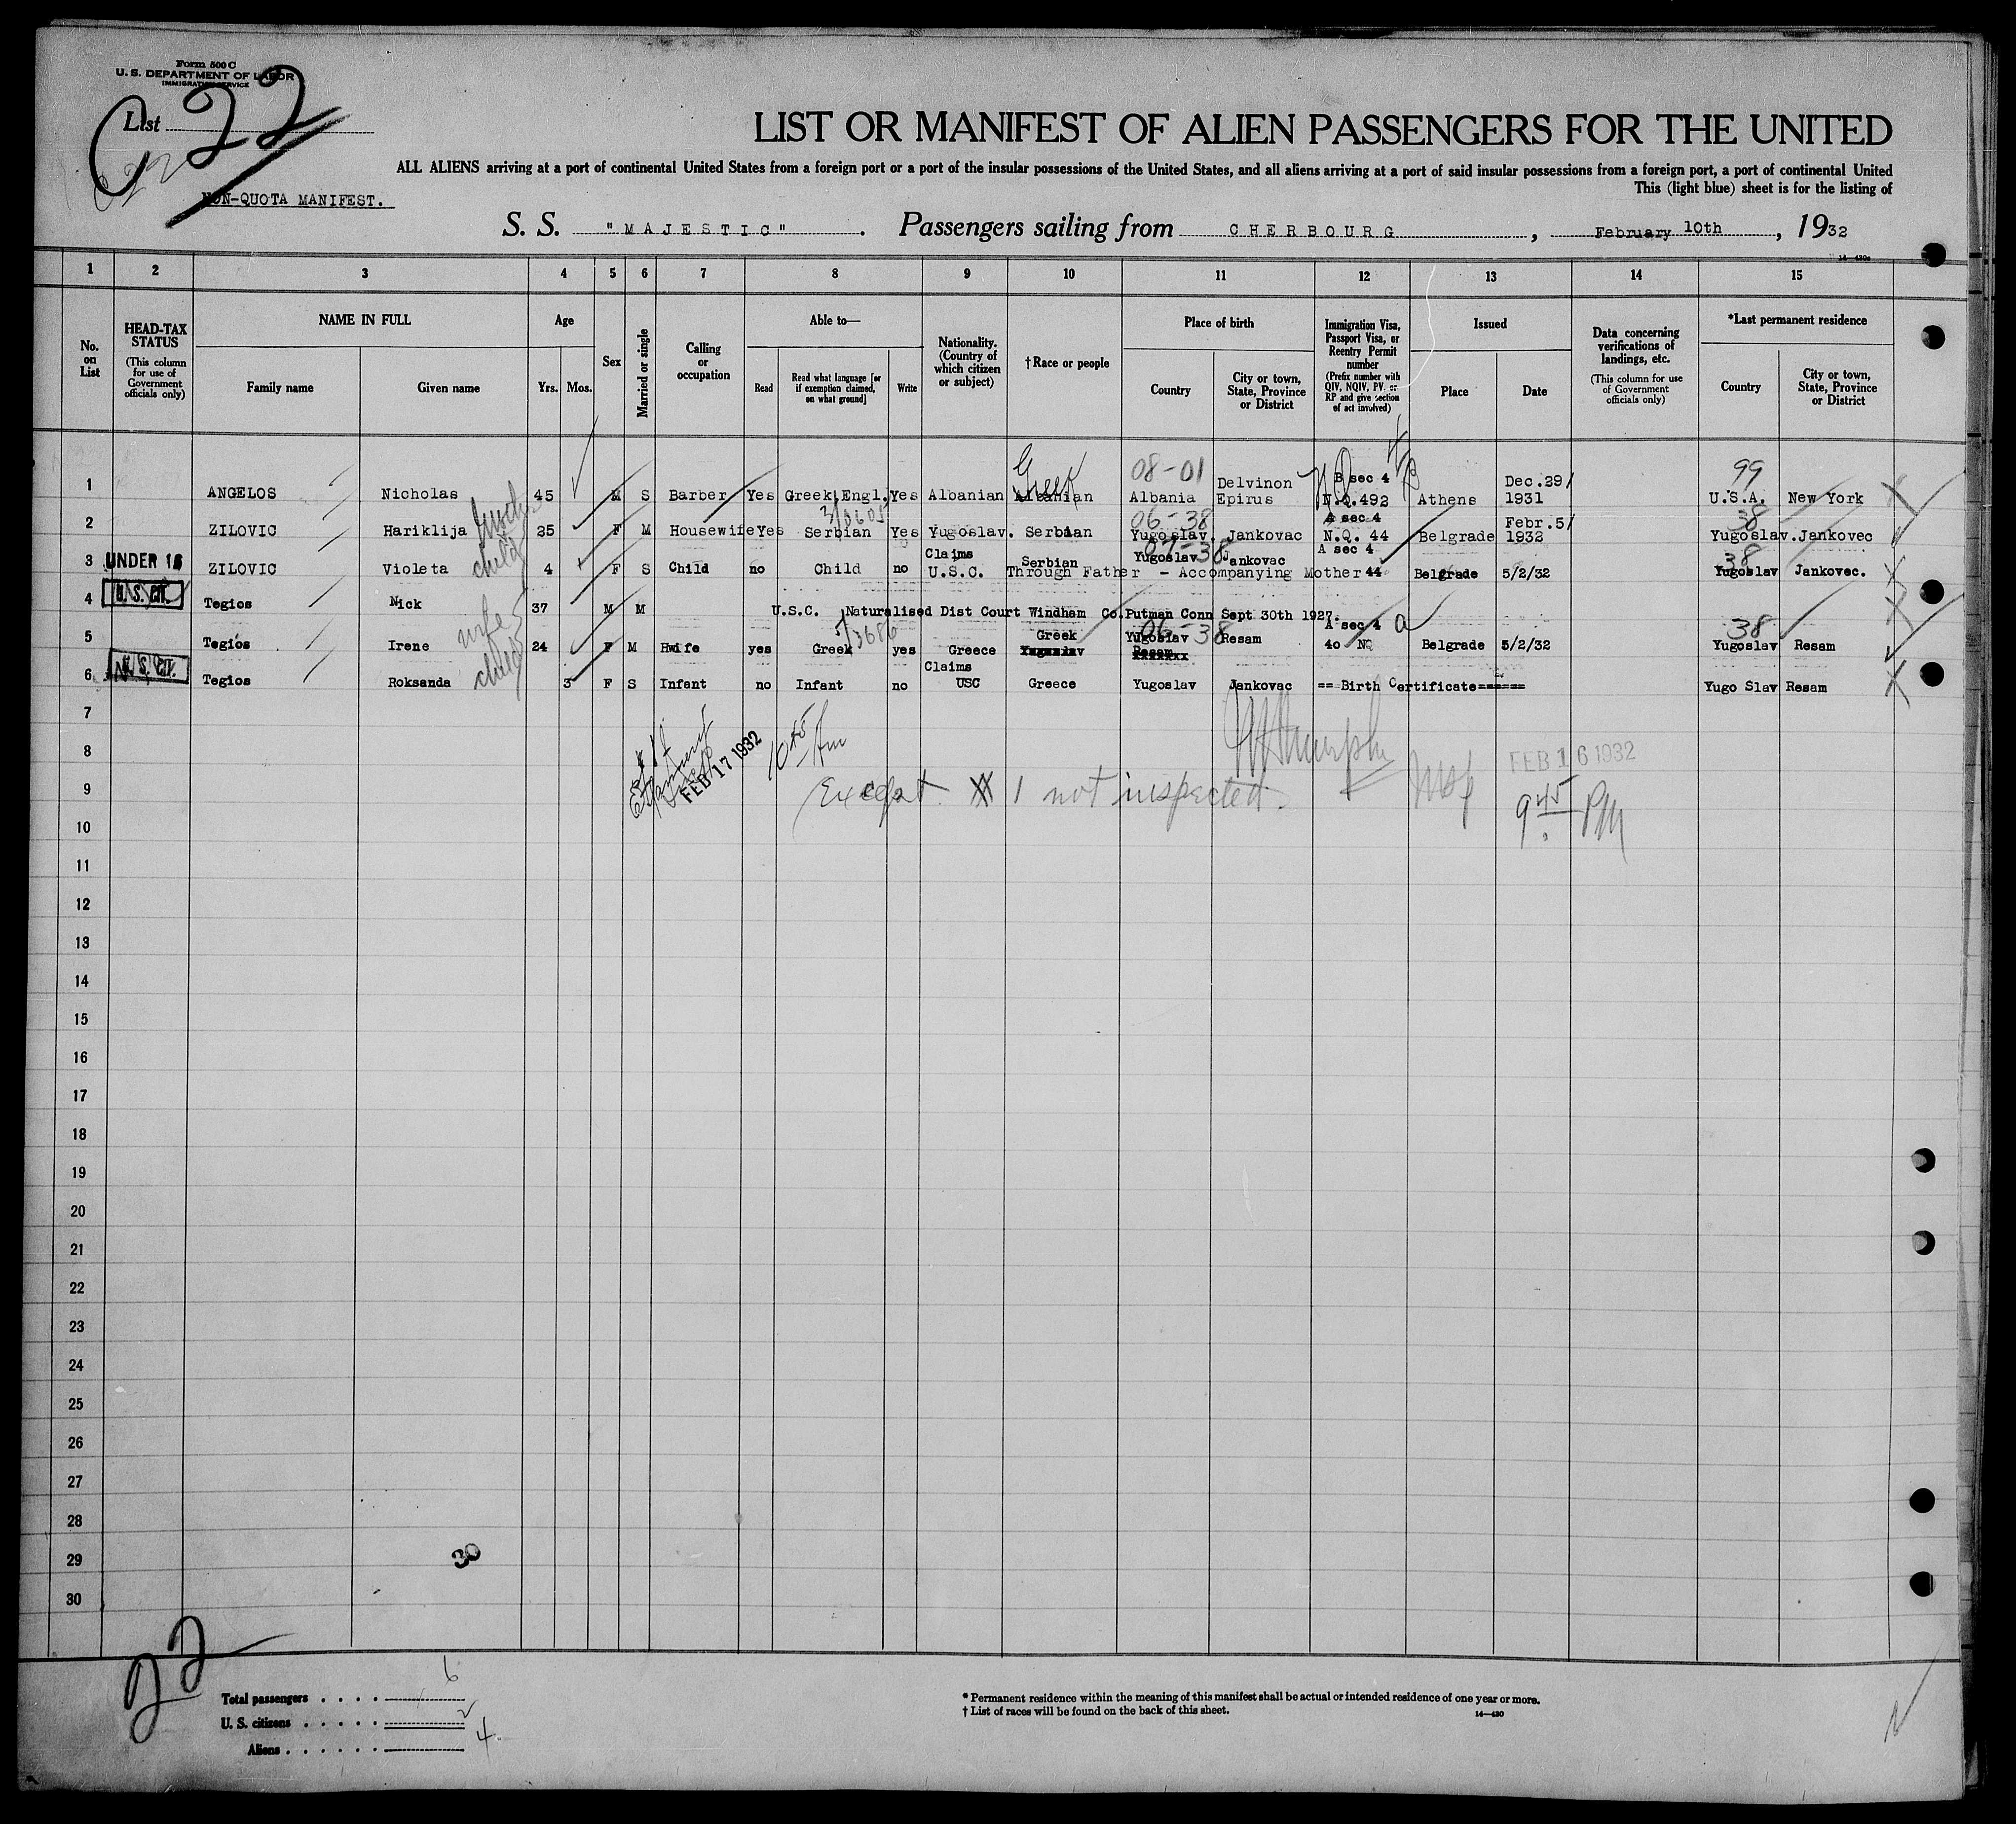 Form 500 C
U. S. DEPARTMENT OF LABOR
IMMIGRATION SERVICE
List 22
NON-QUOTA MANIFEST.
LIST OR MANIFEST OF ALIEN PASSENGERS FOR THE UNITED
ALL ALIENS arriving at a port of continental United States from a foreign port or a port of the insular possessions of the United States, and all aliens arriving at a port of said insular possessions from a foreign port, a port of continental United
This (light blue) sheet is for the listing of
S. S. "MAJESTIC". Passengers sailing from CHERBOURG, February 10th, 1932
1 2 3 4 5 6 7 8 9 10 11 12 13 14 15
No. on List
HEAD-TAX STATUS (This column for use of Government officials only)
NAME IN FULL
Family name
Given name
Age
Yrs. Mos.
Sex
Married or single
Calling or occupation
Able to—
Read
Read what language [or if exemption claimed, on what ground]
Write
Nationality. (Country of which citizen or subject)
† Race or people
Place of birth
Country
City or town, State, Province or District
Immigration Visa, Passport Visa, or Reentry Permit number (Prefix number with QIV, NQIV, PV. or RP and give section of act involved)
Issued
Place
Date
Data concerning verifications of landings, etc. (This column for use of Government officials only)
*Last permanent residence
Country
City or town, State, Province or District
Greek 08-01 Delvinon B sec 4 Dec.29/ 99
1 ANGELOS Nicholas 45 M S Barber Yes Greek,Engl. Yes Albanian Albanian Albania Epirus N.Q.492 Athens 1931 U.S.A. New York
06-38 A sec 4 Febr.5/ 38
2 ZILOVIC Hariklija 25 F M Housewife Yes Serbian Yes Yugoslav. Serbian Yugoslav. Jankovac N.Q. 44 Belgrade 1932 Yugoslav. Jankovec
Claims Serbian Yugoslav Jankovac A sec 4 38
3 UNDER 16 ZILOVIC Violeta child 4 F S Child no Child no U.S.C. Through Father - Accompanying Mother 44 Belgrade 5/2/32 Yugoslav Jankovec.
4 U.S. CIT. Tegios Nick 37 M M U.S.C. Naturalised Dist Court Windham Co.Putman Conn Sept 30th 1927.
Greek 06-38 A sec 4 38
5 Tegios Irene wife 24 F M Hwife yes Greek yes Greece Yugoslav Yugoslav Resam 40 NQ Belgrade 5/2/32 Yugoslav Resam
Claims
6 U.S. CIT. Tegios Roksanda child 3 F S Infant no Infant no USC Greece Yugoslav Jankovac == Birth Certificate====== Yugo Slav Resam
7
8
FEB 17 1932
10 45 Am
FEB 16 1932
9 Except 1 not inspected.
9 45 PM
10
11
12
13
14
15
16
17
18
19
20
21
22
23
24
25
26
27
28
29
30
30
22
Total passengers . . . . 6
U. S. citizens . . . . . 2
Aliens . . . . . . 4
* Permanent residence within the meaning of this manifest shall be actual or intended residence of one year or more.
† List of races will be found on the back of this sheet.
14—430